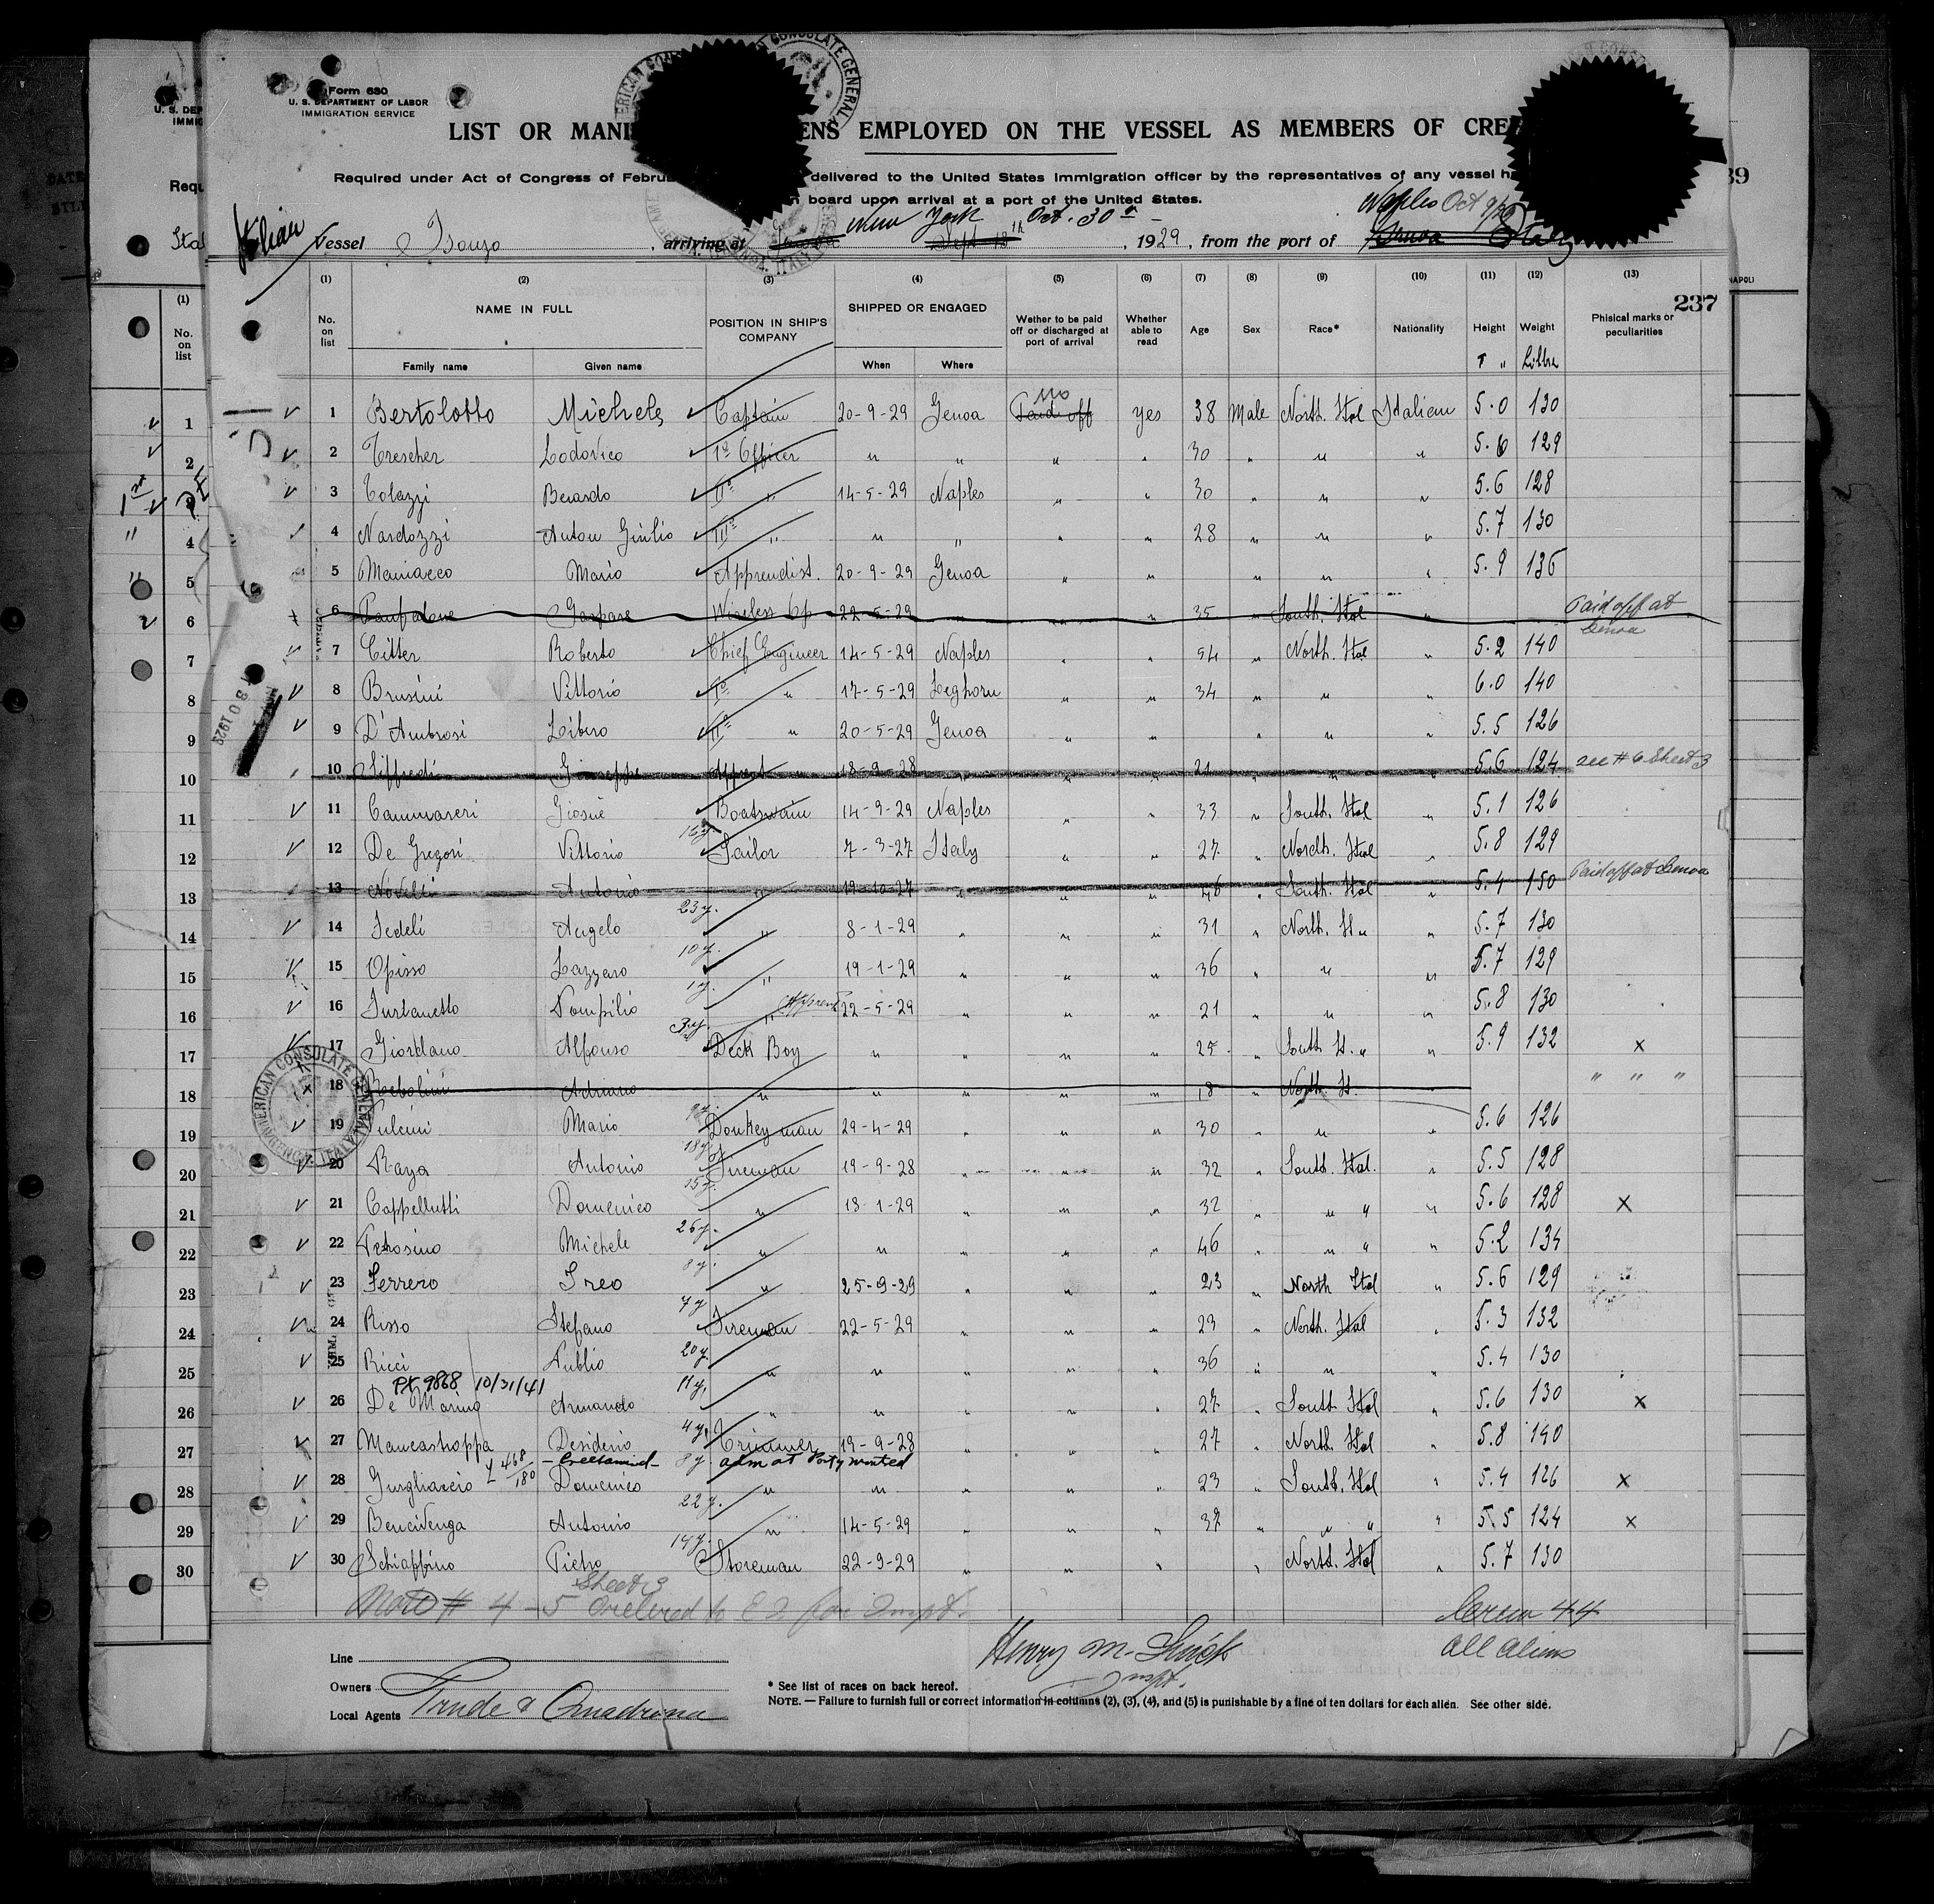 Form 630
U. S. DEPARTMENT OF LABOR
IMMIGRATION SERVICE
LIST OR MANI ENS EMPLOYED ON THE VESSEL AS MEMBERS OF CRE
Required under Act of Congress of Febru delivered to the United States immigration officer by the representatives of any vessel h
board upon arrival at a port of the United States.
Italian Vessel Isonzo, arriving at New York Oct. 30 Sept 13th, 1929, from the port of Naples Oct 9/29 Genoa Italy
237
(1) (2) (3) (4) (5) (6) (7) (8) (9) (10) (11) (12) (13)
No. on list NAME IN FULL Family name Given name POSITION IN SHIP'S COMPANY SHIPPED OR ENGAGED When Where Wether to be paid off or discharged at port of arrival Whether able to read Age Sex Race* Nationality Height Weight Phisical marks or peculiarities
1 Bertolotto Michele Captain 20-9-29 Genoa Paid off No yes 38 Male North. Ital Italian 5.0 130
2 Trescher Lodovico 1º Officer " " " " 30 " " " 5.6 129
3 Tolazzi Berardo IIº " 14-5-29 Naples " " 30 " " " 5.6 128
4 Nardozzi Anton Giulio IIIº " " " " " 28 " " " 5.7 130
5 Maniacco Mario Apprendist. 20-9-29 Genoa " " " " " 5.9 136
6 Gaspare Wireless Op 22-5-29 " " " 35 " South. Ital " Paid off at Genoa
7 Citter Roberto Chief Engineer 14-5-29 Naples " " 54 " North. Ital " 5.2 140
8 Brusini Vittorio Iº " 17-5-29 Leghorn " " 34 " " " 6.0 140
9 D'Ambrosi Libero IIº " 20-5-29 Genoa " " " " " 5.5 126
10 Siffredi Giuseppe Apprent " 18-9-28 " " " 21 " " " 5.6 124 see # 6 Sheet 3
11 Cammareri Giosuè Boatswain 14-9-29 Naples " " 33 " South. Ital " 5.1 126
12 De Gregori Vittorio 16y. Sailor 7-3-27 Italy " " 27 " North. Ital " 5.8 129
13 Novelli Antonio " 19-10-27 " " " 46 " South. Ital " 5.4 150 Paid off at Genoa
14 Fedeli Angelo 23y. " 8-1-29 " " " 31 " North. It " " 5.7 130
15 Opisso Lazzaro 10y. " 19-1-29 " " " 36 " " " 5.7 129
16 Furlanetto Pompilio 1y. " Apprent 22-5-29 " " " 21 " " " 5.8 130
17 Giordano Alfonso 3y. Deck Boy " " " " 25 " South It. " " 5.9 132 x
18 Adriano " " " " " 18 " North. It. " " "
19 Fulcini Mario Donkey man 29-4-29 " " " 30 " " " 5.6 126
20 Raya Antonio 18y. Fireman 19-9-28 " " " 32 " South. Ital. " 5.5 128
21 Cappellutti Domenico 15y. " 13-1-29 " " " 32 " " " " 5.6 128 x
22 Petrosino Michele 26y. " " " " " 46 " " " " 5.2 134
23 Ferrero Ireo 8y. " 25-9-29 " " " 23 " North Ital " 5.6 129
24 Risso Stefano 7y Fireman 22-5-29 " " " 23 " North. Ital " 5.3 132
25 Ricci Publio 20y. " " " " " 36 " " " 5.4 130
PX 9868 10/31/41
26 De Marino Armando 11y. " " " " " 27 " South Ital " 5.6 130 x
27 Mancastroppa Desiderio 4y. Trimmer 19-9-28 " " " 27 " North. Ital " 5.8 140
L 468/180 8y adm at Port
28 Gurgliaccio Domenico " " " " " 23 " South. Ital " 5.4 126 x
29 Bencivenga Antonio 22y. " 14-5-29 " " " 37 " " " " 5.5 124 x
30 Schiaffino Pietro 14y. Storeman 22-9-29 " " " " North. Ital " 5.7 130
Note # 4-5 Sheet 3 Ordered to E I for Inspt.
Crew 44
all aliens
Henry M. Inspt.
Line
Owners
Local Agents
* See list of races on back hereof.
NOTE. — Failure to furnish full or correct information in columns (2), (3), (4), and (5) is punishable by a fine of ten dollars for each alien. See other side.
AMERICAN CONSULATE GENERAL GENOA, ITALY